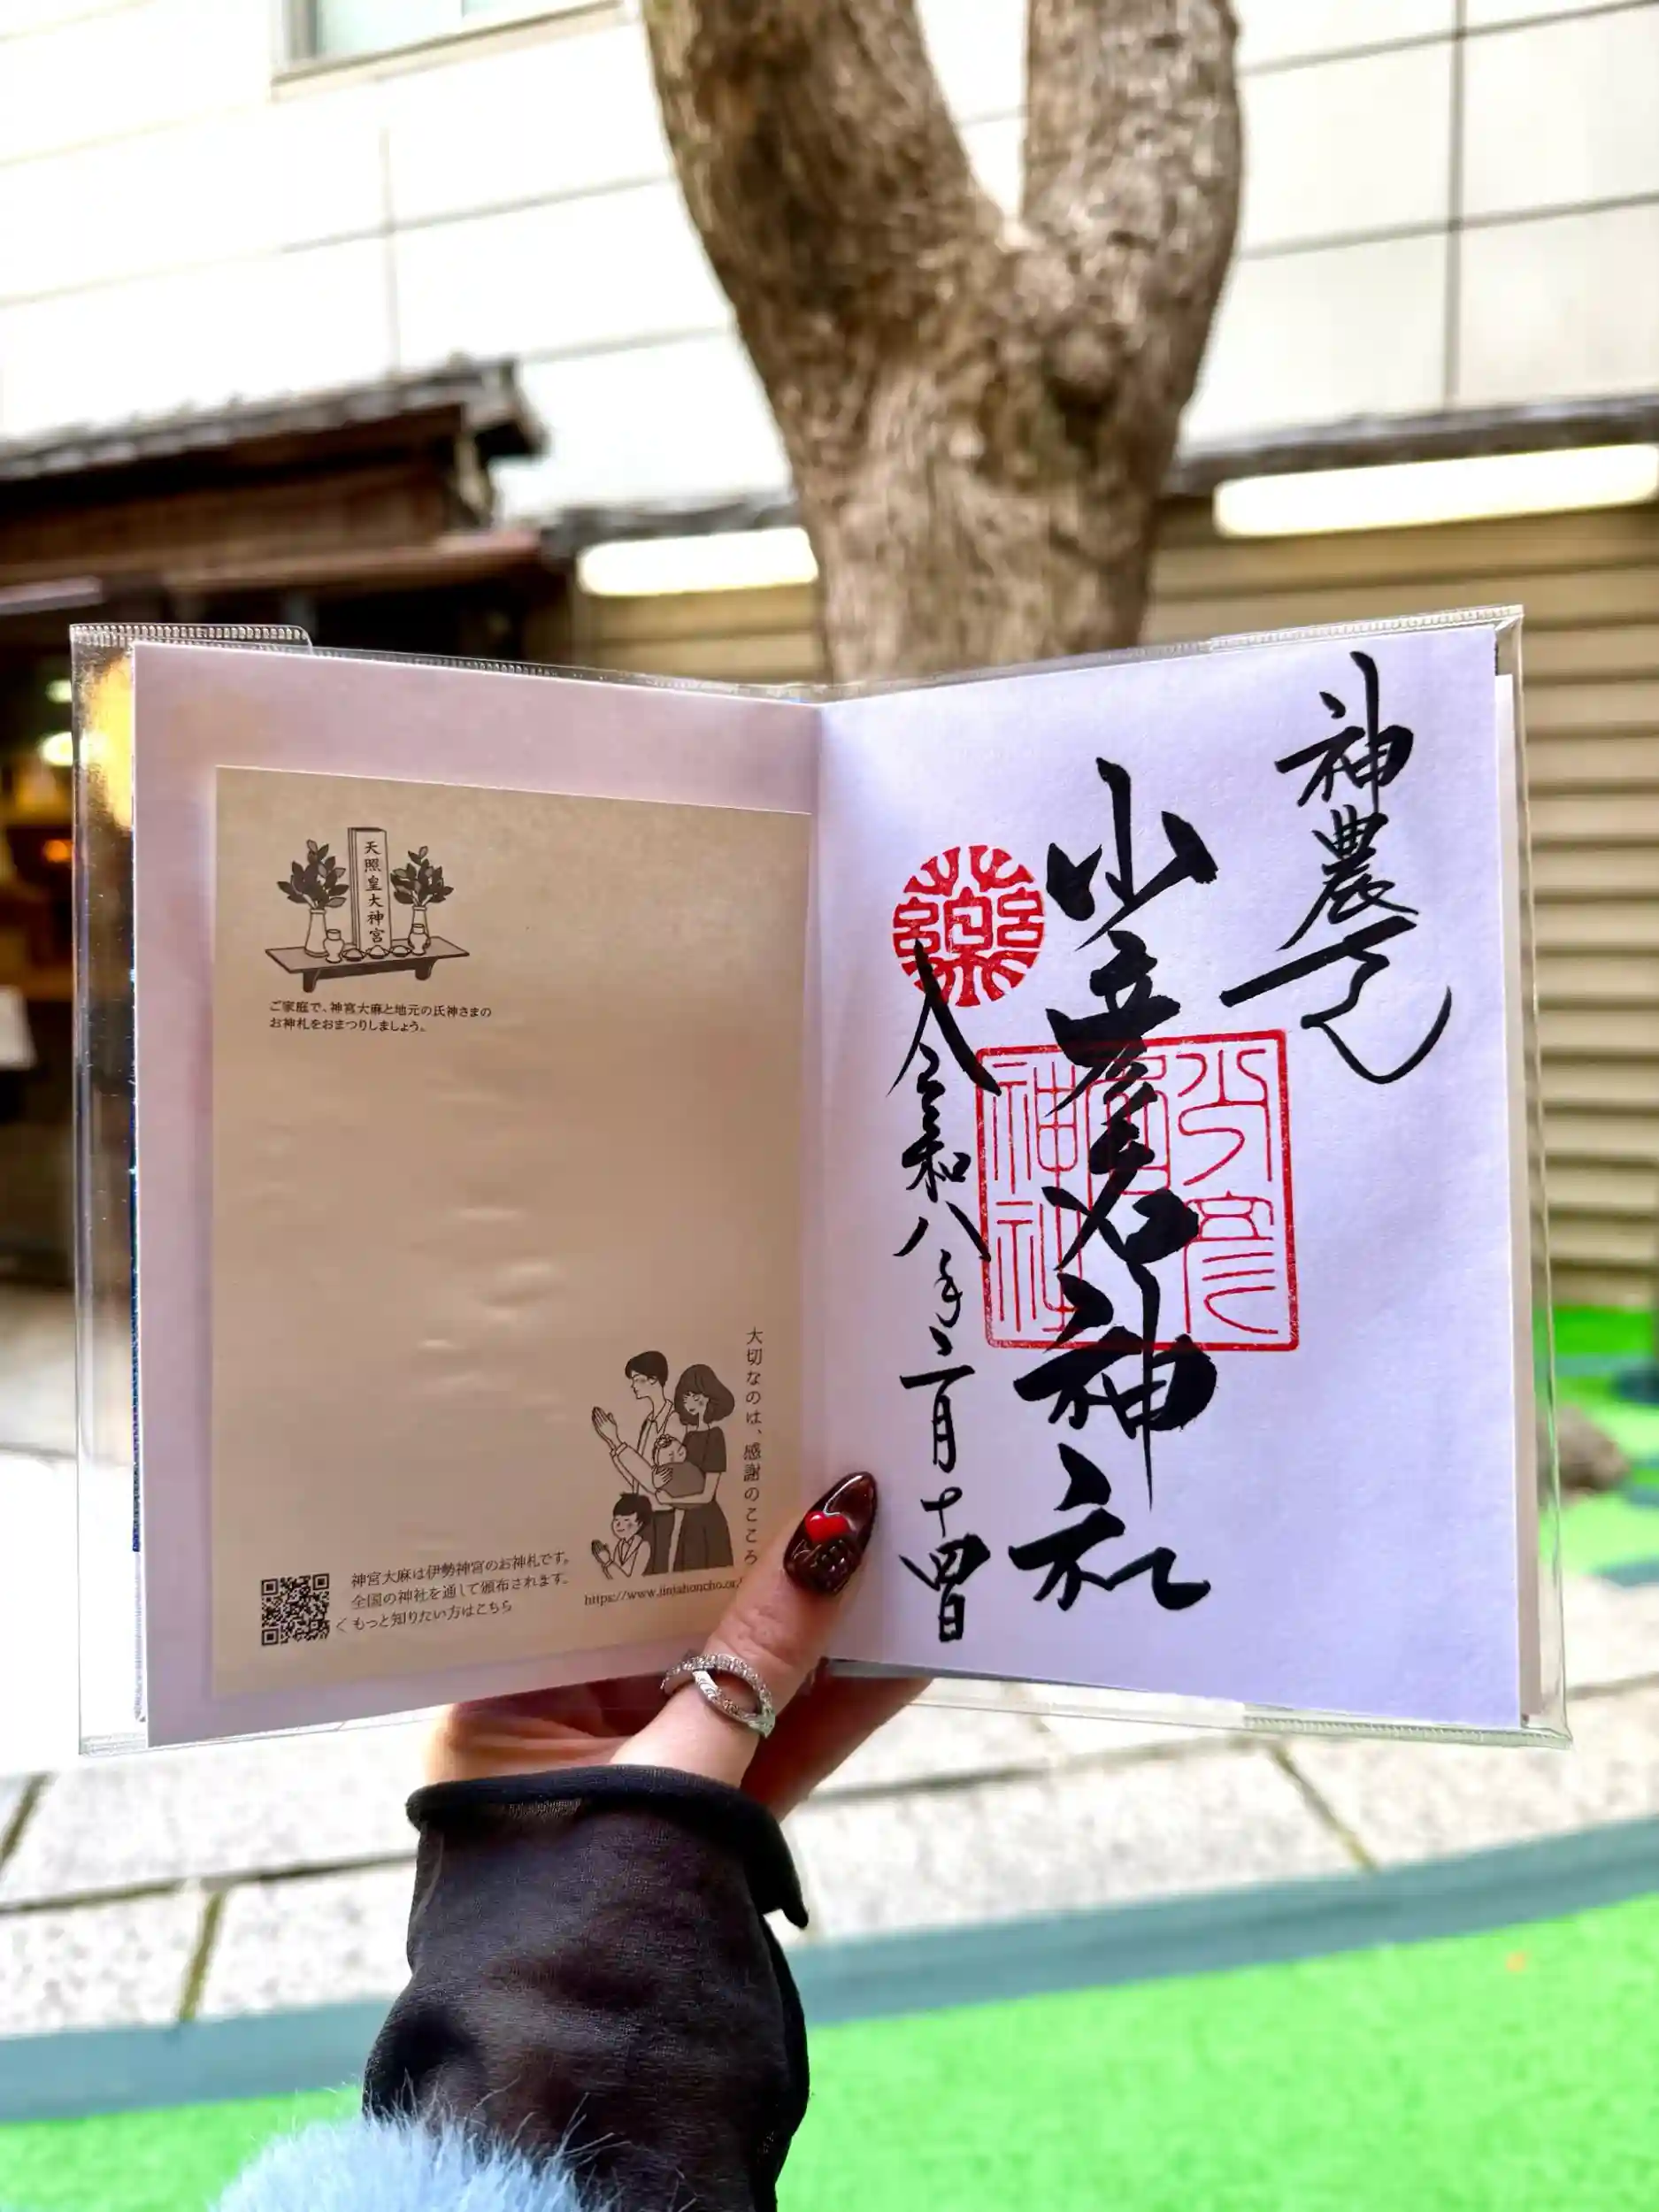 神農さん
少彦名神社
令和八年二月十四日
薬
少彦名神社
天照皇大神宮
ご家庭で、神宮大麻と地元の氏神さまの
お神札をおまつりしましょう。
大切なのは、感謝のこころ
神宮大麻は伊勢神宮のお神札です。
全国の神社を通して頒布されます。
< もっと知りたい方はこちら
https://www.jinjahoncho.or.j